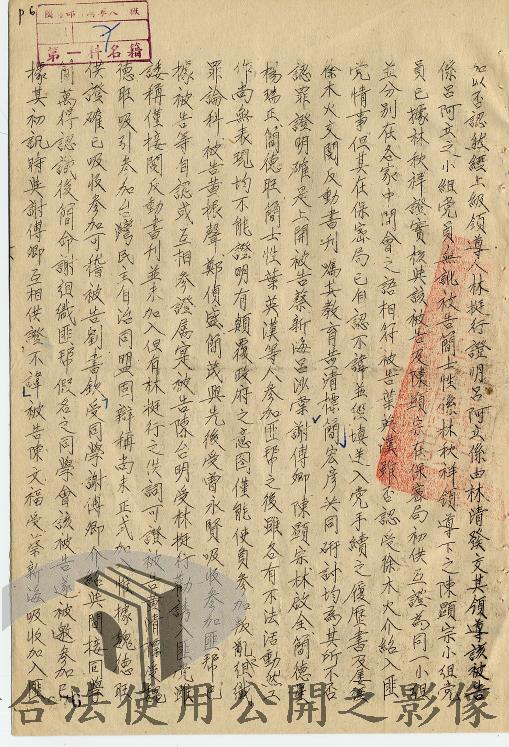 p6
第一科名籍
以否認然經上級領導人林挺行證明呂阿立係由林清發交其領導該被告
係呂阿立之小組党員無訛被告簡士性係林秋祥領導下之陳顯宗小組党
員已據林秋祥證實核與該被告及陳顯宗在保密局初供互證為同一小組
並分別在各家中開會之語相符被告葉英漢雖否認受徐木火介紹入匪
党情事但其在保密局已自認不諱並經填具入党手續之履歷書及
徐木火交閱反動書刊為其教育黃清標簡宏彥共同研討均為其所不否
認罪證明確是上開被告蔡新海呂沙棠謝傳卿陳顯宗林啟全簡德
楊瑞正簡德旺簡士性葉英漢等人參加匪帮之後雖各有不法活動然
作尚無表現均不能證明有顛覆政府之意圖僅能使負參加叛亂組織
罪論科被告黃振聲鄭偵盛簡茂興先後受曹永賢吸收參加匪帮已
據被告等自認或互相參證屬實被告陳台明受林挺行
諉稱僅接閱反動書刊並未加入但有林挺行之供詞可證被告黃清
德旺吸引參加台灣民主自治同盟固辯稱尚未正式加 據魏德旺
供證確已吸收參加可稽被告劉書欽受同學謝傳卿介 與閱接同學
簡萬得認識後簡命謝組織匪帮假名之同學會該被告遂被邀參加已
據其初訊時與謝傳卿互相供證不諱被告陳文福受蔡新海吸收加入匪
合法使用公開之影像